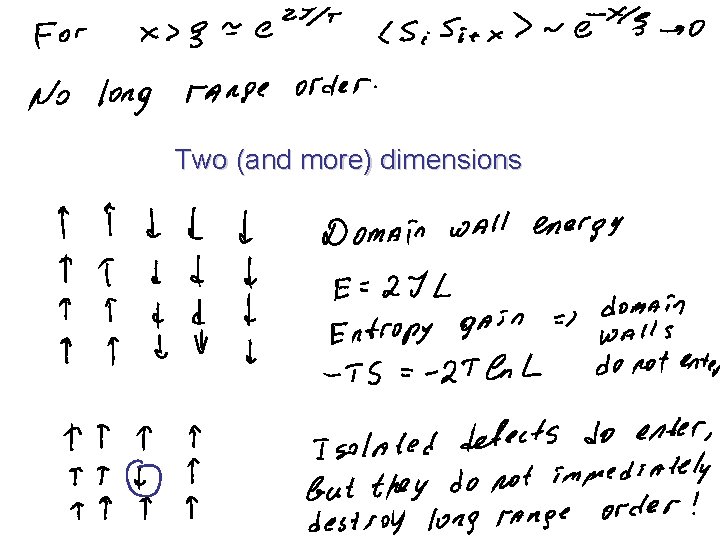 For x > ξ ≃ e^{2J/T} <S_i S_{i+x}> ~ e^{-x/ξ} → 0
No long range order.
Two (and more) dimensions
↑ ↑ ↓ ↓ ↓
↑ ↑ ↓ ↓ ↓
↑ ↑ ↓ ↓ ↓
↑ ↑ ↓ ↓ ↓
Domain wall energy
E = 2JL
Entropy gain => domain walls
-TS = -2T ln L do not enter
↑ ↑ ↑ ↑
↑ ↑ ↓ ↑
↑ ↑ ↑ ↑
Isolated defects do enter,
but they do not immediately
destroy long range order!